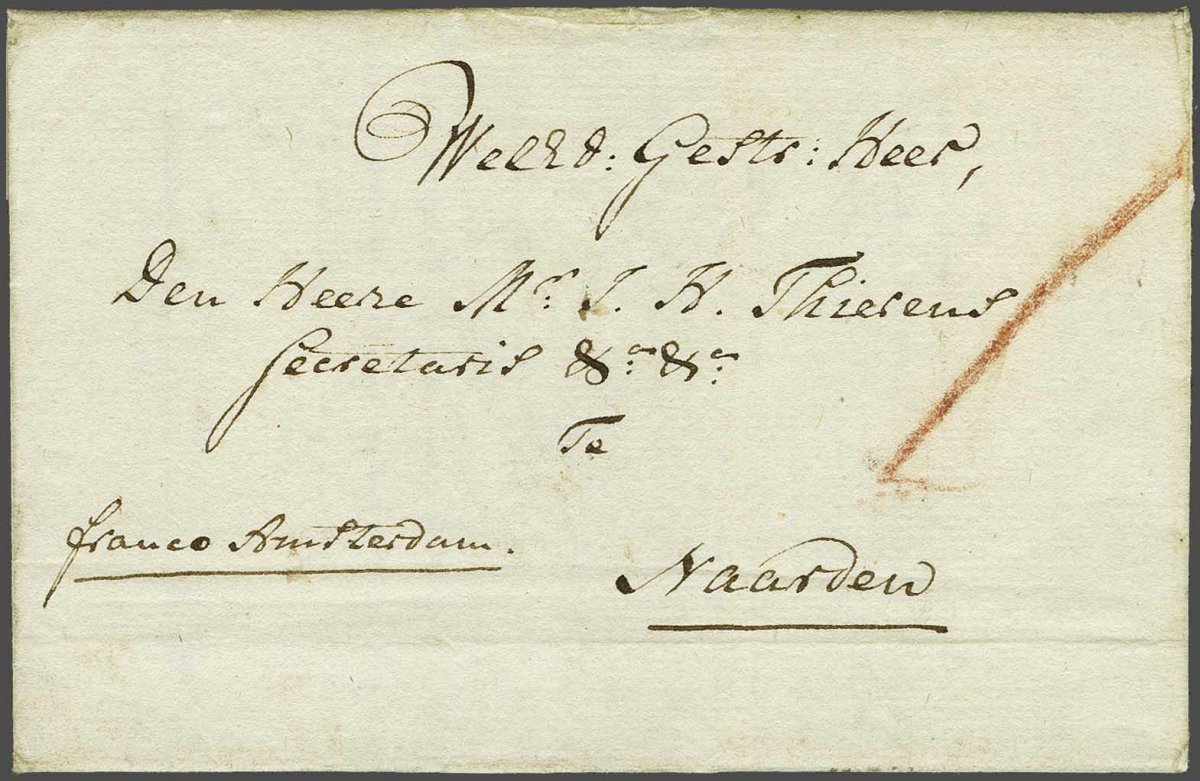 WelEd: Gestr: Heer,
Den Heere Mr. J. H. Thierens
Secretaris &a: &a:
Te
franco Amsterdam.
Naarden